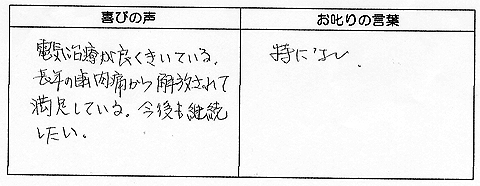 喜びの声
お叱りの言葉
電気治療が良くきいている。
長年の歯肉痛から解放されて
満足している。今後も継続
したい。
特になし。